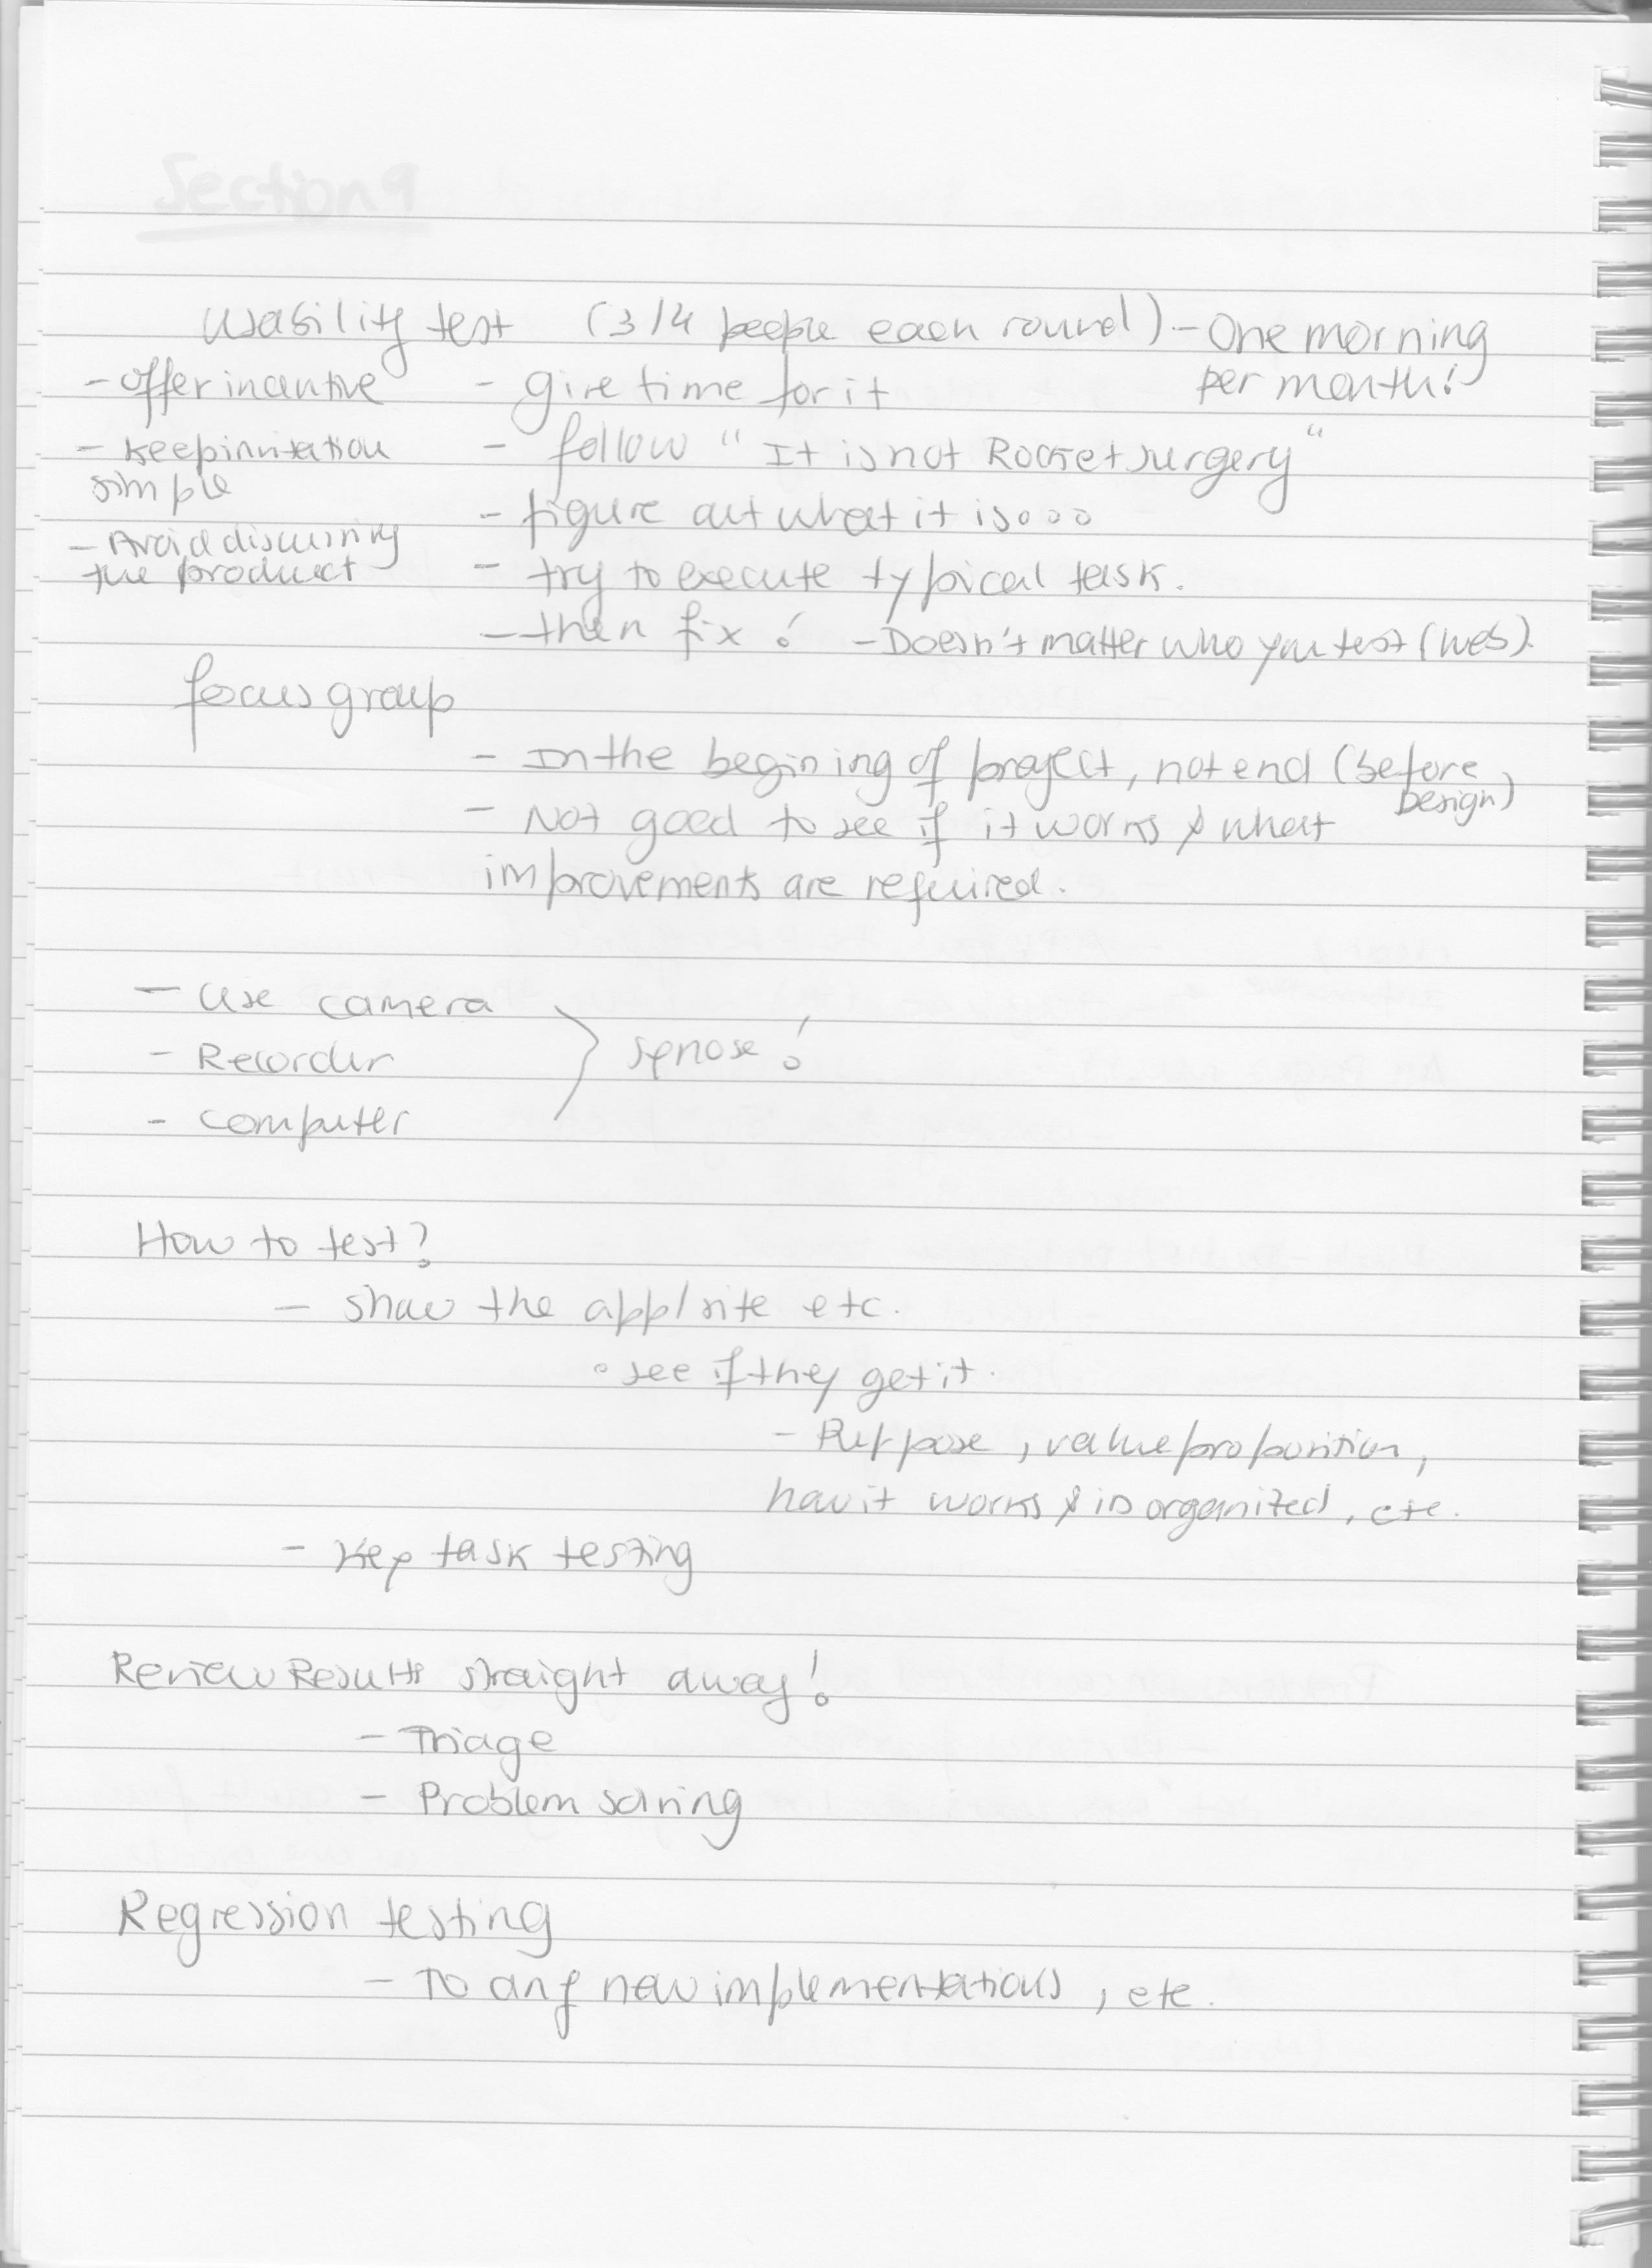 Section 9
Usability test (3/4 people each round) - One morning
per month!
- Offer incentive
- Keep invitation
simple
- Avoid discussing
the product
- give time for it
- follow "It is not Rocket surgery"
- figure out what it is...
- try to execute typical task.
- then fix! - Doesn't matter who you test (web).
focus group
- In the begining of project, not end (before
Design)
- Not good to see if it works & what
improvements are required.
- Use camera
- Recorder
- Computer
How to test?
- show the app/site etc.
• see if they get it.
- Purpose, value proposition,
how it works & is organized, etc.
- Key task testing
Review Results straight away!
- Triage
- Problem solving
Regression testing
- To any new implementations, etc.